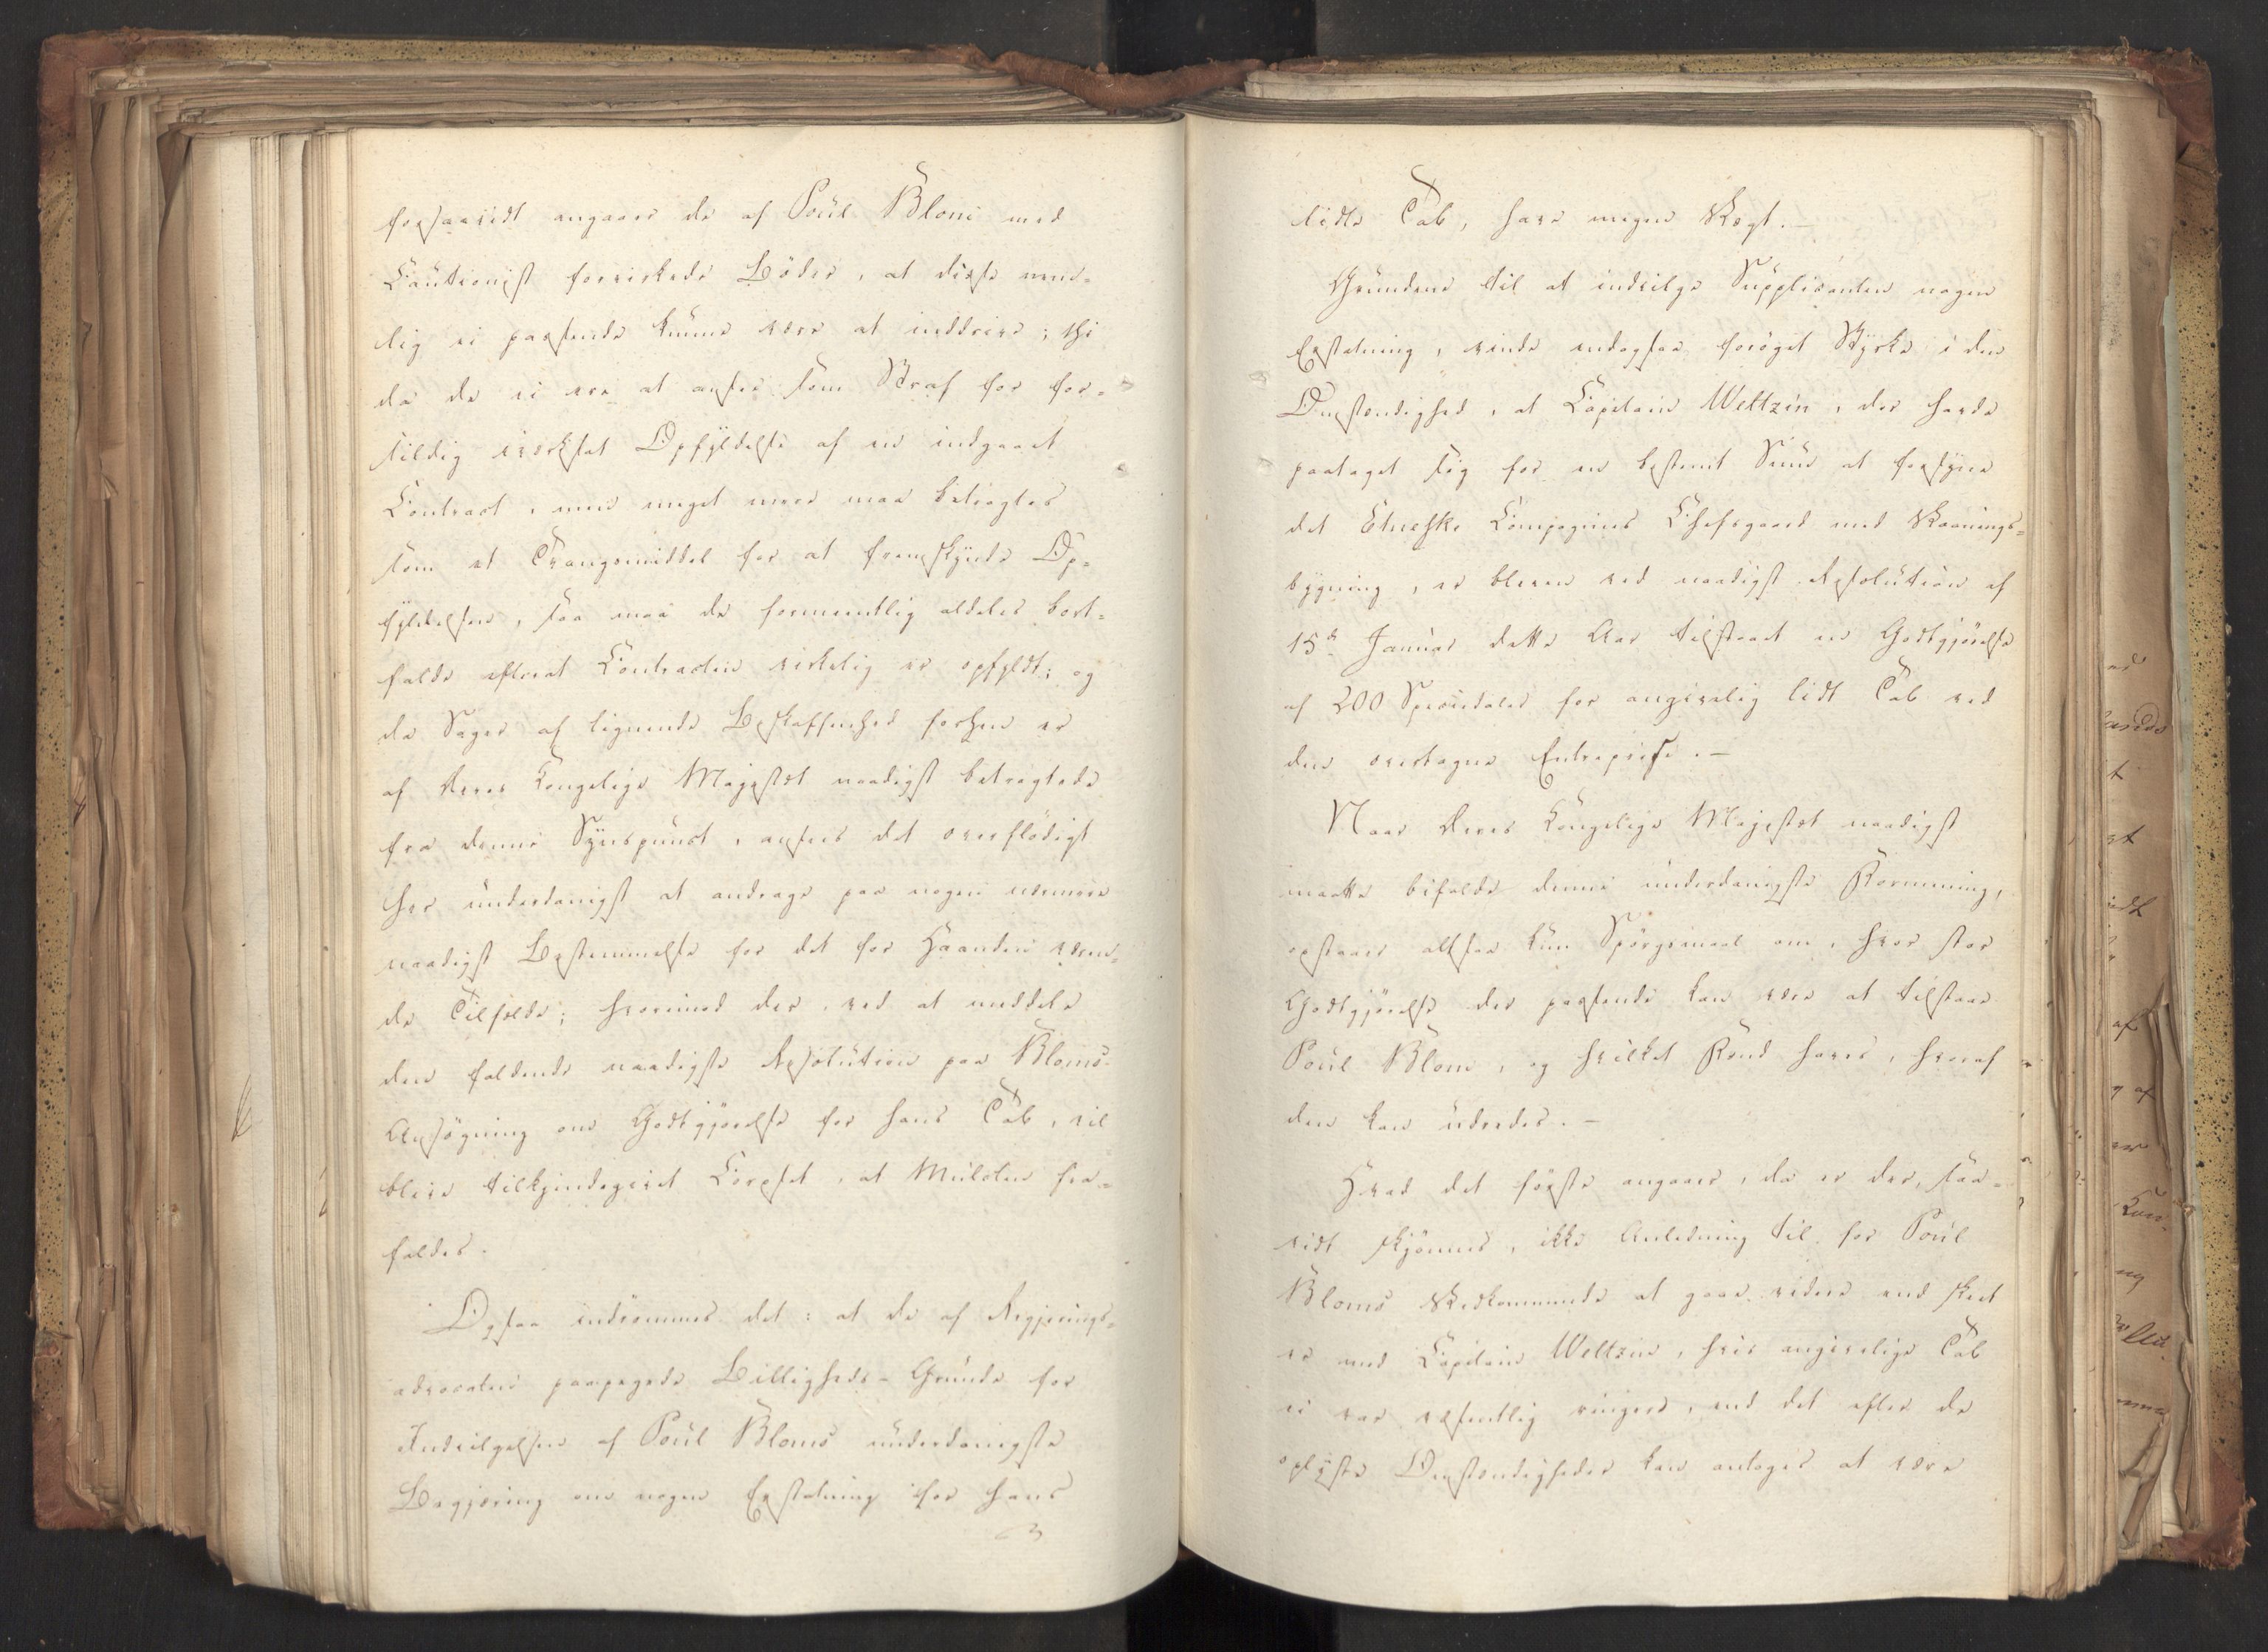 forsaavidt angaaer de af Poul Blom med
Cautionist forvirkede Böder, at disse nem-
lig ei passende kunne være at inddrive; thi
da de ei ere at ansee som Straf for for-
sildig iværksat Opfyldelse af en indgaaet
Contract, men meget meer maa betragtes
som et Tvangsmiddel for at fremskynde Op-
fyldelsen, saa maa de formeentlig aldeles bort-
falde efterat Contracten virkelig er opfyldt; og
da Sager af lignende Beskaffenhed forhen er
af Deres Kongelige Majestæt naadigst betragtede
fra denne Synspunct, ansees det overflödigt
her underdanigst at andrage paa nogen nærmere
naadigst Bestemmelse for det for Haanden væren-
de Tilfælde; hvorimod der, ved at meddele
den faldende naadigste Resolution paa Bloms
Ansögning om Godtgjörelse for hans Tab, vil
blive tilkjendegivet Corpset, at Mulcten fra-
faldes.
Ogsaa indrömmes det: at de af Regjerings-
advocaten paapegede Billigheds-Grunde for
Indvilgelsen af Poul Bloms underdanigste
Begjæring om nogen Erstatning for hans
lidte Tab, have megen Vægt.-
Grundene til at indvilge Supplicanten nogen
Erstatning, vinde endogsaa foröget Styrke i den
Omstændighed, at Capitain Weltzin, der havde
paataget sig for en bestemt Sum at forsyne
det Etneske Compagnies Chefsgaard med Vaanings-
bygning, er bleven ved naadigst Resolution af
15de Januar dette Aar tilstaaet en Godtgjörelse
af 200 Speciedaler for angivelig lidt Tab ved
den overtagne Entreprise.-
Naar Deres Kongelige Majestæt naadigst
maatte bifalde denne underdanigste Formening,
opstaaer altsaa kun Spörgsmaal om, hvor stor
Godtgjörelse der passende kan være at tilstaae
Poul Blom, og hvilket Fond haves, hvoraf
den kan udredes.-
Hvad det förste angaaer, da er der, saa-
vidt skjönnes, ikke Anledning til for Poul
Bloms Vedkommende at gaae videre end skeet
er med Capitain Weltzin, hvis angivelige Tab
ei var væsentlig ringere, end det efter de
oplyste Omstændigheder kan antages at være